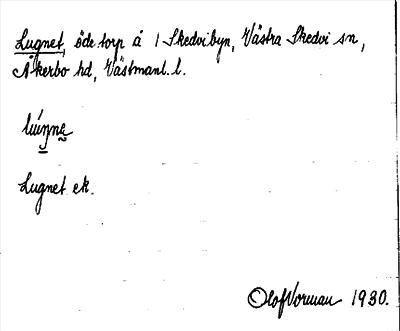 Lugnet, öde torp å 1 Skedvibyn, Västra Skedvi sn,
Åkerbo hd, Västmanl. l.
Lugnet ek.
Olof Vorman 1930.